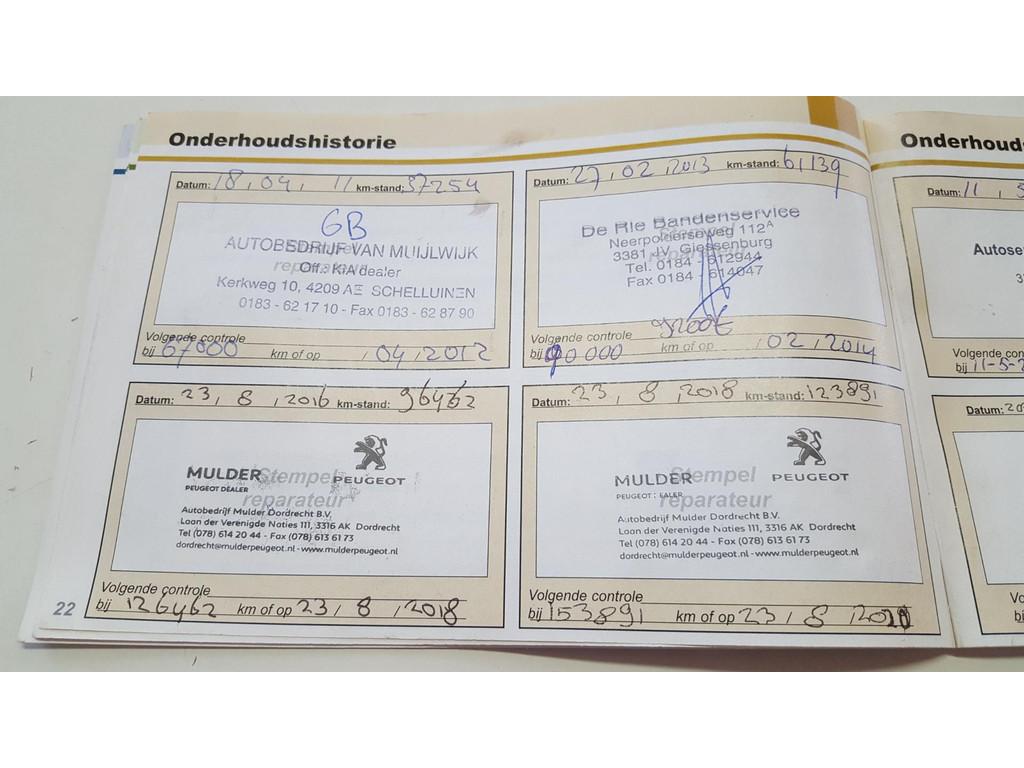 Onderhoudshistorie
Datum: 18, 04, 11 km-stand: 37254
GB
AUTOBEDRIJF VAN MUIJLWIJK
Stempel
Off. KIA dealer
reparateur
Kerkweg 10, 4209 AE SCHELLUINEN
0183 - 62 17 10 - Fax 0183 - 62 87 90
Volgende controle
bij 67000 km of op , 04 , 2012
Datum: 27, 02, 2013 km-stand: 61139
De Rie Bandenservice
Stempel
Neerpolderseweg 112A
3381 JV Giessenburg
reparateur
Tel. 0184 - 612944
Fax 0184 - 614047
Volgende controle
bij 90000 km of op , 02, 2014
Datum: 23, 8, 2016 km-stand: 96462
MULDER
PEUGEOT DEALER
PEUGEOT
Stempel
reparateur
Autobedrijf Mulder Dordrecht B.V.
Laan der Verenigde Naties 111, 3316 AK Dordrecht
Tel (078) 614 20 44 - Fax (078) 613 61 73
dordrecht@mulderpeugeot.nl - www.mulderpeugeot.nl
Volgende controle
bij 126462 km of op 23, 8, 2018
Datum: 23, 8, 2018 km-stand: 123891
MULDER
PEUGEOT EALER
PEUGEOT
Stempel
reparateur
Autobedrijf Mulder Dordrecht B.V.
Laan der Verenigde Naties 111, 3316 AK Dordrecht
Tel (078) 614 20 44 - Fax (078) 613 61 73
dordrecht@mulderpeugeot.nl - www.mulderpeugeot.nl
Volgende controle
bij 153891 km of op 23, 8, 2020
22
Onderhouds
Datum: 11, 5
Autose
Volgende con
bij 11-5-2
Datum: 20
Vo
bij